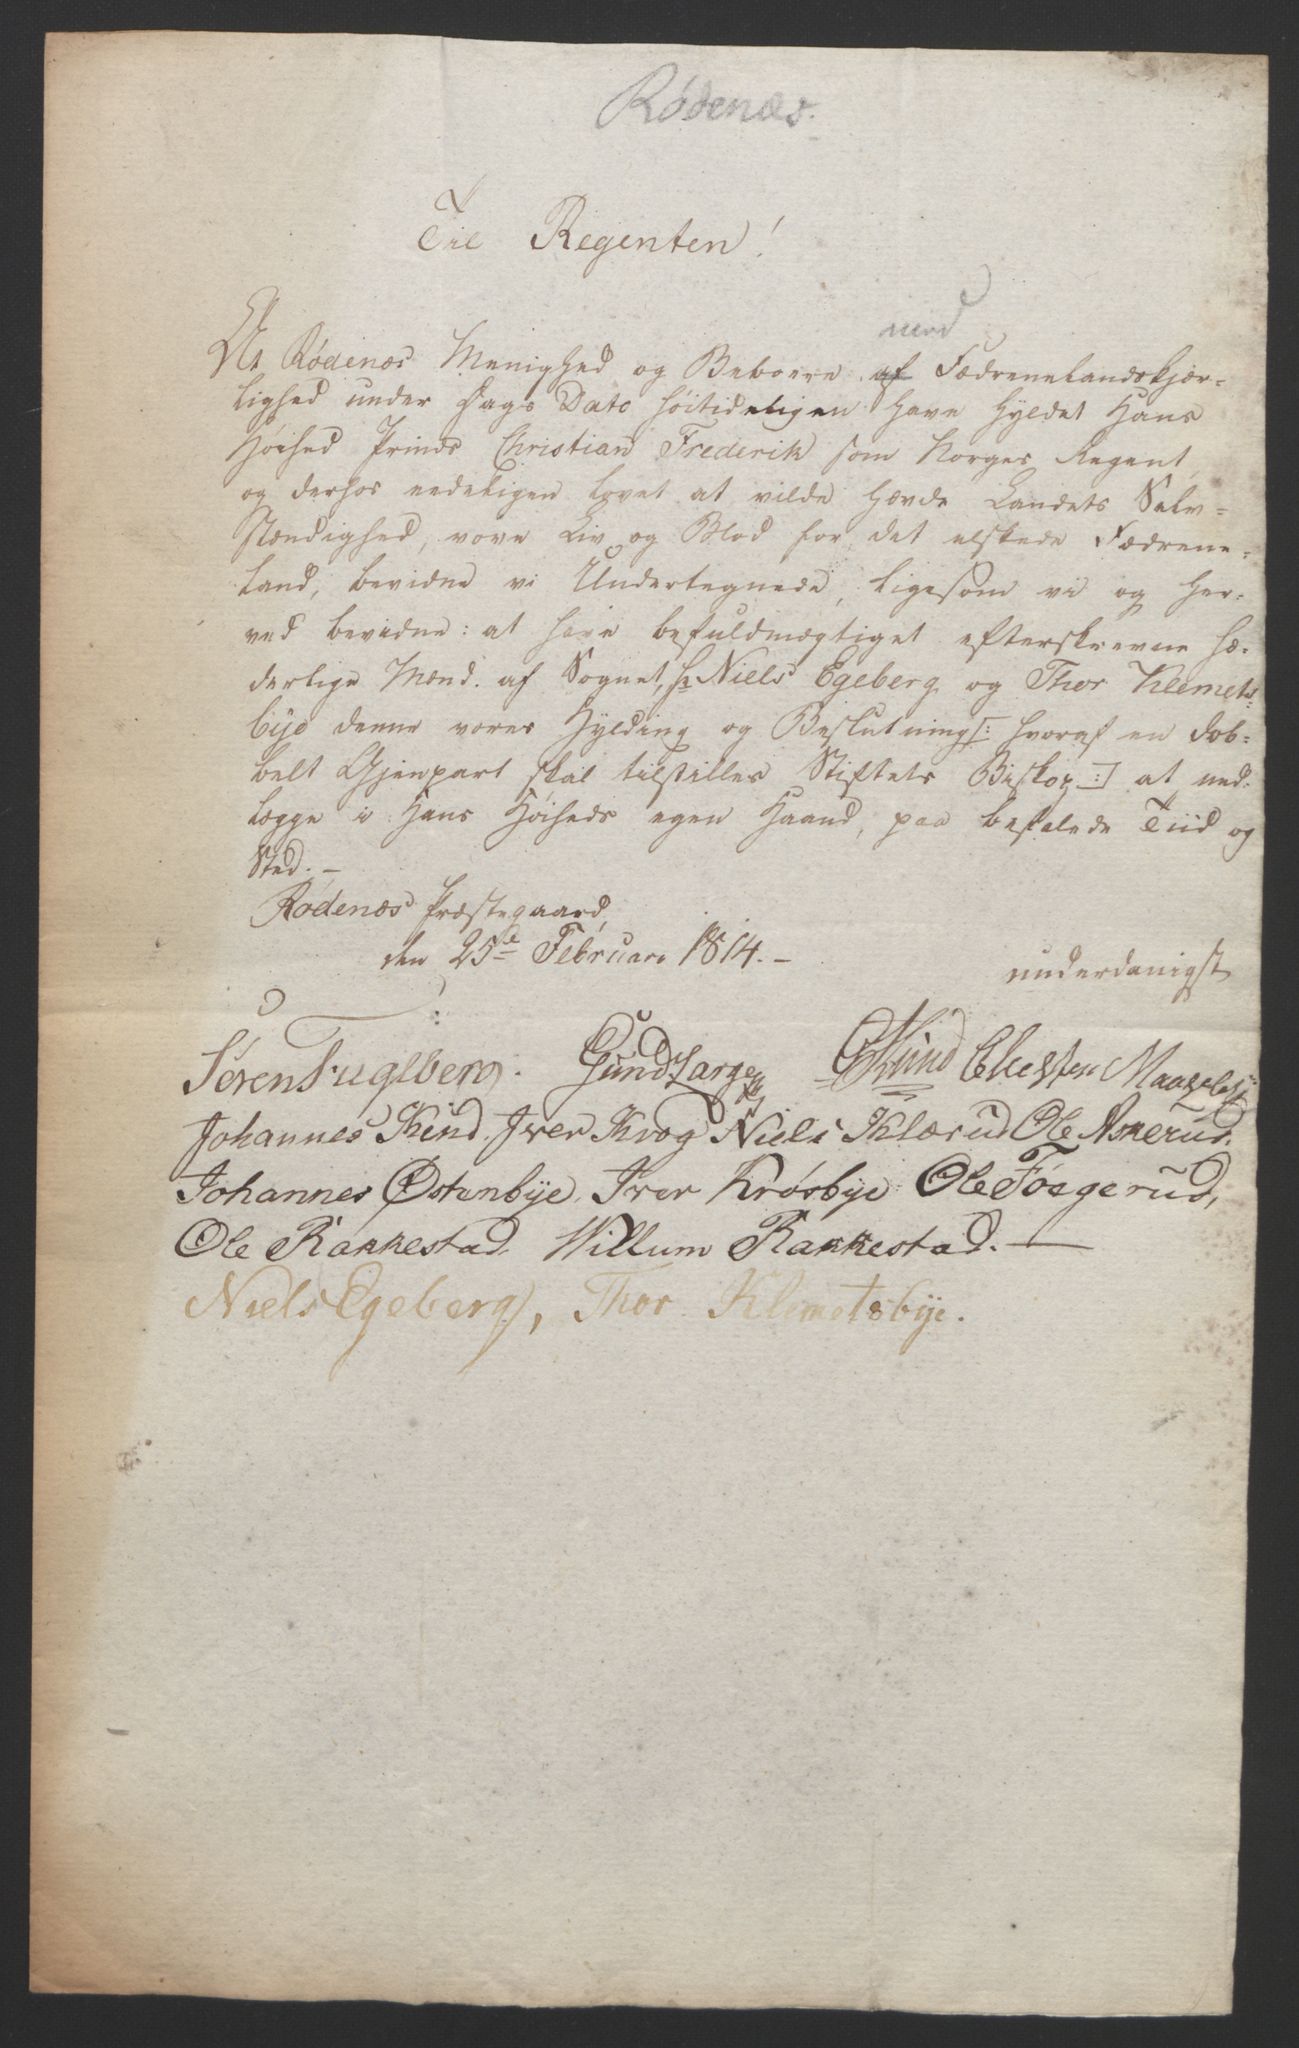 Rødenæs.
Til Regenten!
med
At Rødenæs Menighed og Beboere af Fædrenelandskjær-
lighed under Dags Dato høitideligen have hyldet Hans
Høihed Prinds Christian Frederik som Norges Regent,
og derhos eedeligen lovet at vilde hævde Landets Selv-
stændighed, vove Liv og Blod for det elskede Fædrene-
land, bevidne vi Undertegnede, ligesom vi og her-
ved bevidne: at have befuldmægtiget efterskrevne hæ-
derlige Mænd af Sognet, Hr Niels Egeberg og Thor Klemets-
bye denne vores Hylding og Beslutning /: hvoraf en dob-
belt Gjenpart skal tilstilles Stiftets Biskop :/ at ned-
lægge i Hans Høiheds egen Haand, paa befalede Tiid og
Sted. -
Rødenæs Præstegaard,
den 25de Februari 1814. -
underdanigst
Søren Fuglberg. Gund Larsen Kind Chresten
Johannes Kind. Iver Krog Niels Klærud Ole Askerud.
Johannes Østenbye. Iver Krøsbye Ole Fosgerud,
Ole Rakkestad. Willum Rakkestad. —
Niels Egeberg, Thor Klemetsbye.